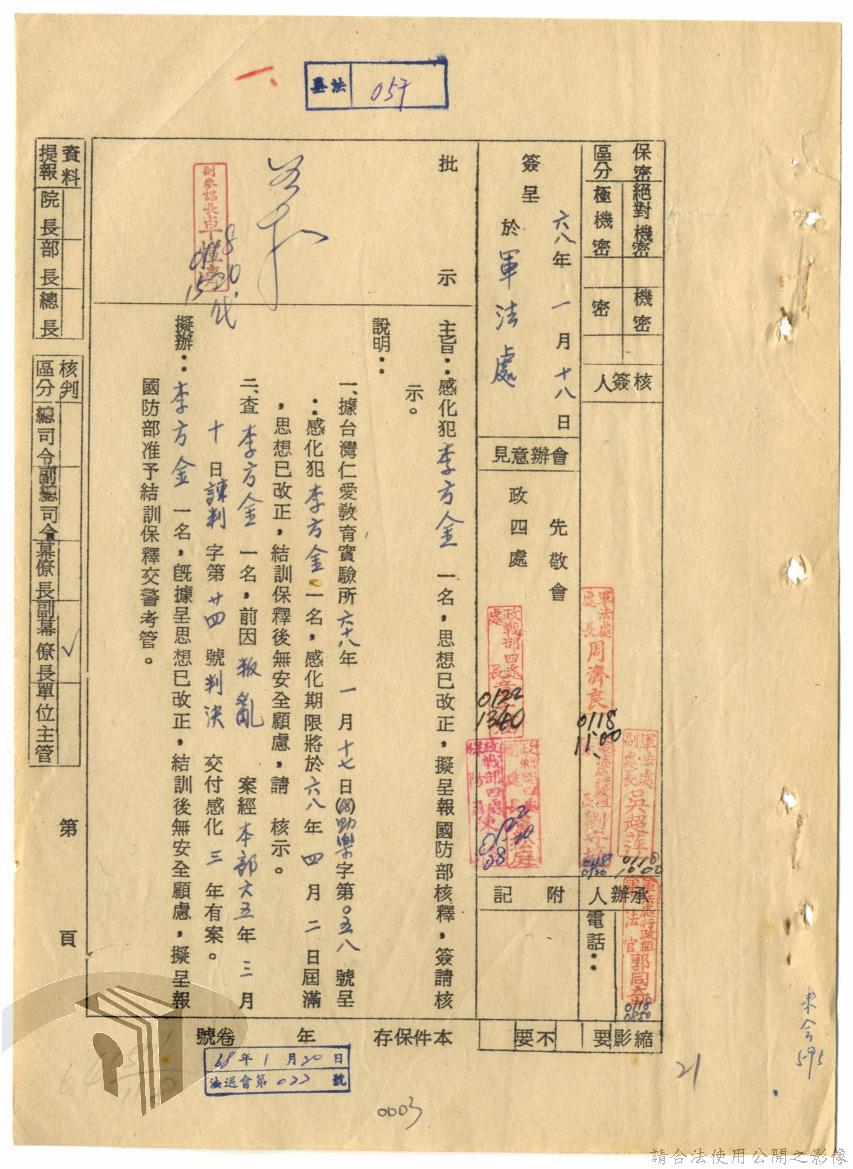 法墨
057
一、
保密區分
絕對機密
極機密
機密
密
簽呈
六八年一月十八日
於軍法處
核簽人
會辦意見
先敬會
政四處
軍法處處長周濟良
0118
1100
軍法處副處長吳超萍
0118
1000
政戰部四處處長
0122
1340
政戰部四處
承辦人
電話：
軍法處行政組軍法官郭同奇
0118
0850
附記
縮影
要
不要
批示
副參謀長卓
代
主旨：感化犯李方金一名，思想已改正，擬呈報國防部核釋，簽請核
示。
說明：
一、據台灣仁愛教育實驗所六八年一月十七日(68)助樂字第0五八號呈
：感化犯李方金一名，感化期限將於六八年四月二日屆滿
，思想已改正，結訓保釋後無安全顧慮，請核示。
二、查李方金一名，前因叛亂案經本部六五年三月
十日諫判字第廿四號判決交付感化三年有案。
擬辦：李方金一名，既據呈思想已改正，結訓後無安全顧慮，擬呈報
國防部准予結訓保釋交警考管。
本件保存
年
卷號
68年1月20日
法送會第022號
資料提報
院長
部長
總長
核判區分
總司令
副總司令
幕僚長
副幕僚長
✓
單位主管
第
頁
21
0003
595
請合法使用公開之影像